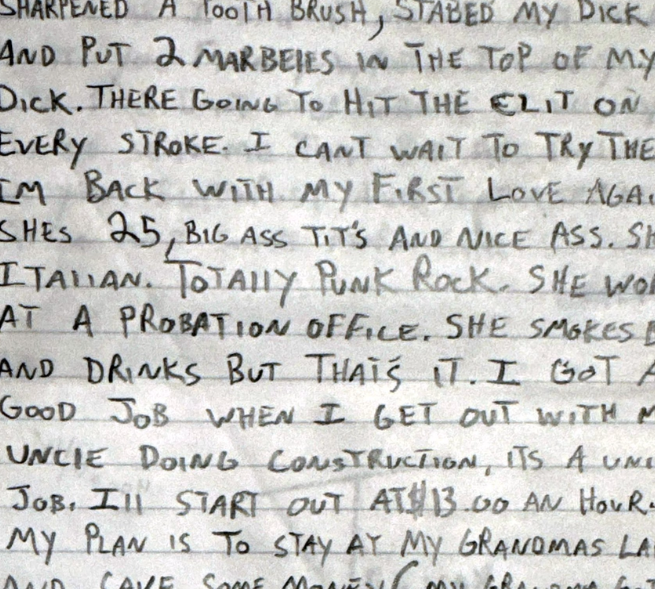 SHARPENED A TOOTH BRUSH, STABED MY DICK
AND PUT 2 MARBELES IN THE TOP OF MY
DICK. THERE GOING TO HIT THE CLIT ON
EVERY STROKE. I CANT WAIT TO TRY THE
IM BACK WITH MY FIRST LOVE AGAI
SHES 25, BIG ASS TIT'S AND NICE ASS. SH
ITALIAN. TOTALLY PUNK ROCK. SHE WO
AT A PROBATION OFFICE. SHE SMOKES
AND DRINKS BUT THATS IT. I GOT A
GOOD JOB WHEN I GET OUT WITH M
UNCLE DOING CONSTRUCTION, ITS A UNI
JOB. I'll START OUT AT $13.00 AN HOUR.
MY PLAN IS TO STAY AT MY GRANDMAS LA
AND SAVE SOME MONEY( MY GRANDMA